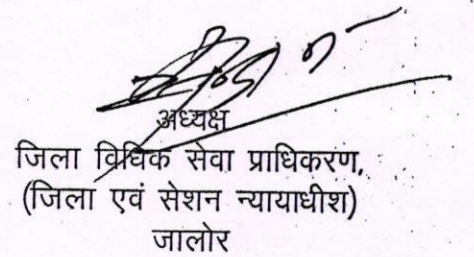 अध्यक्ष
जिला विधिक सेवा प्राधिकरण,
(जिला एवं सेशन न्यायाधीश)
जालोर